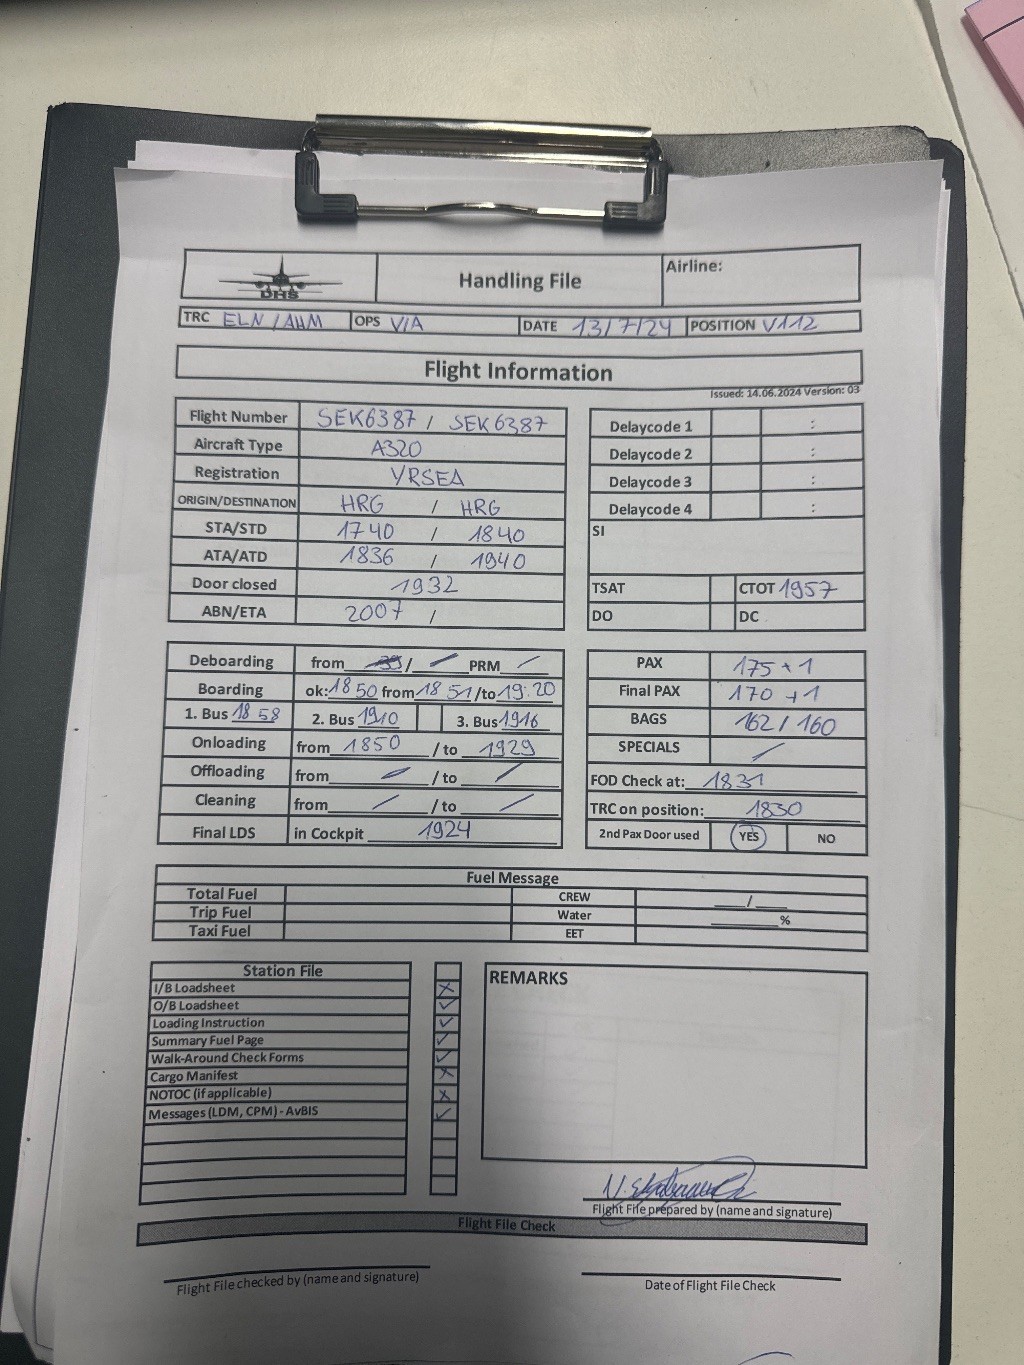 DHS
Handling File
Airline:
TRC ELN / AHM OPS VIA DATE 13/7/24 POSITION V112
Flight Information
Issued: 14.06.2024 Version: 03
Flight Number SEK6387 / SEK6387
Aircraft Type A320
Registration YRSEA
ORIGIN/DESTINATION HRG / HRG
STA/STD 1740 / 1840
ATA/ATD 1836 / 1940
Door closed 1932
ABN/ETA 2007 /
Delaycode 1 :
Delaycode 2 :
Delaycode 3 :
Delaycode 4 :
SI
TSAT CTOT 1957
DO DC
Deboarding from / PRM /
Boarding ok: 18 50 from 18 51 /to 19:20
1. Bus 18 58 2. Bus 1910 3. Bus 1916
Onloading from 1850 / to 1929
Offloading from / / to /
Cleaning from / / to /
Final LDS in Cockpit 1924
PAX 175 + 1
Final PAX 170 +1
BAGS 162 / 160
SPECIALS /
FOD Check at: 1831
TRC on position: 1830
2nd Pax Door used YES NO
Fuel Message
Total Fuel CREW /
Trip Fuel Water %
Taxi Fuel EET
Station File
I/B Loadsheet X
O/B Loadsheet ✓
Loading Instruction ✓
Summary Fuel Page ✓
Walk-Around Check Forms ✓
Cargo Manifest X
NOTOC (if applicable) X
Messages (LDM, CPM) - AvBIS ✓
REMARKS
Flight File prepared by (name and signature)
Flight File Check
Flight File checked by (name and signature)
Date of Flight File Check